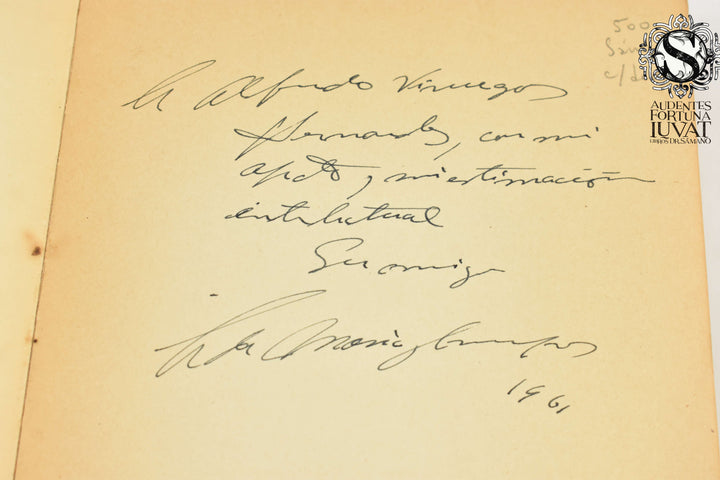 A Alfredo Viruegas
Hernandes, con mi
afecto y mi estimación
intelectual
Su amigo
1961
500
S
AUDENTES
FORTUNA
IUVAT
LIBROS DR. SÁMANO